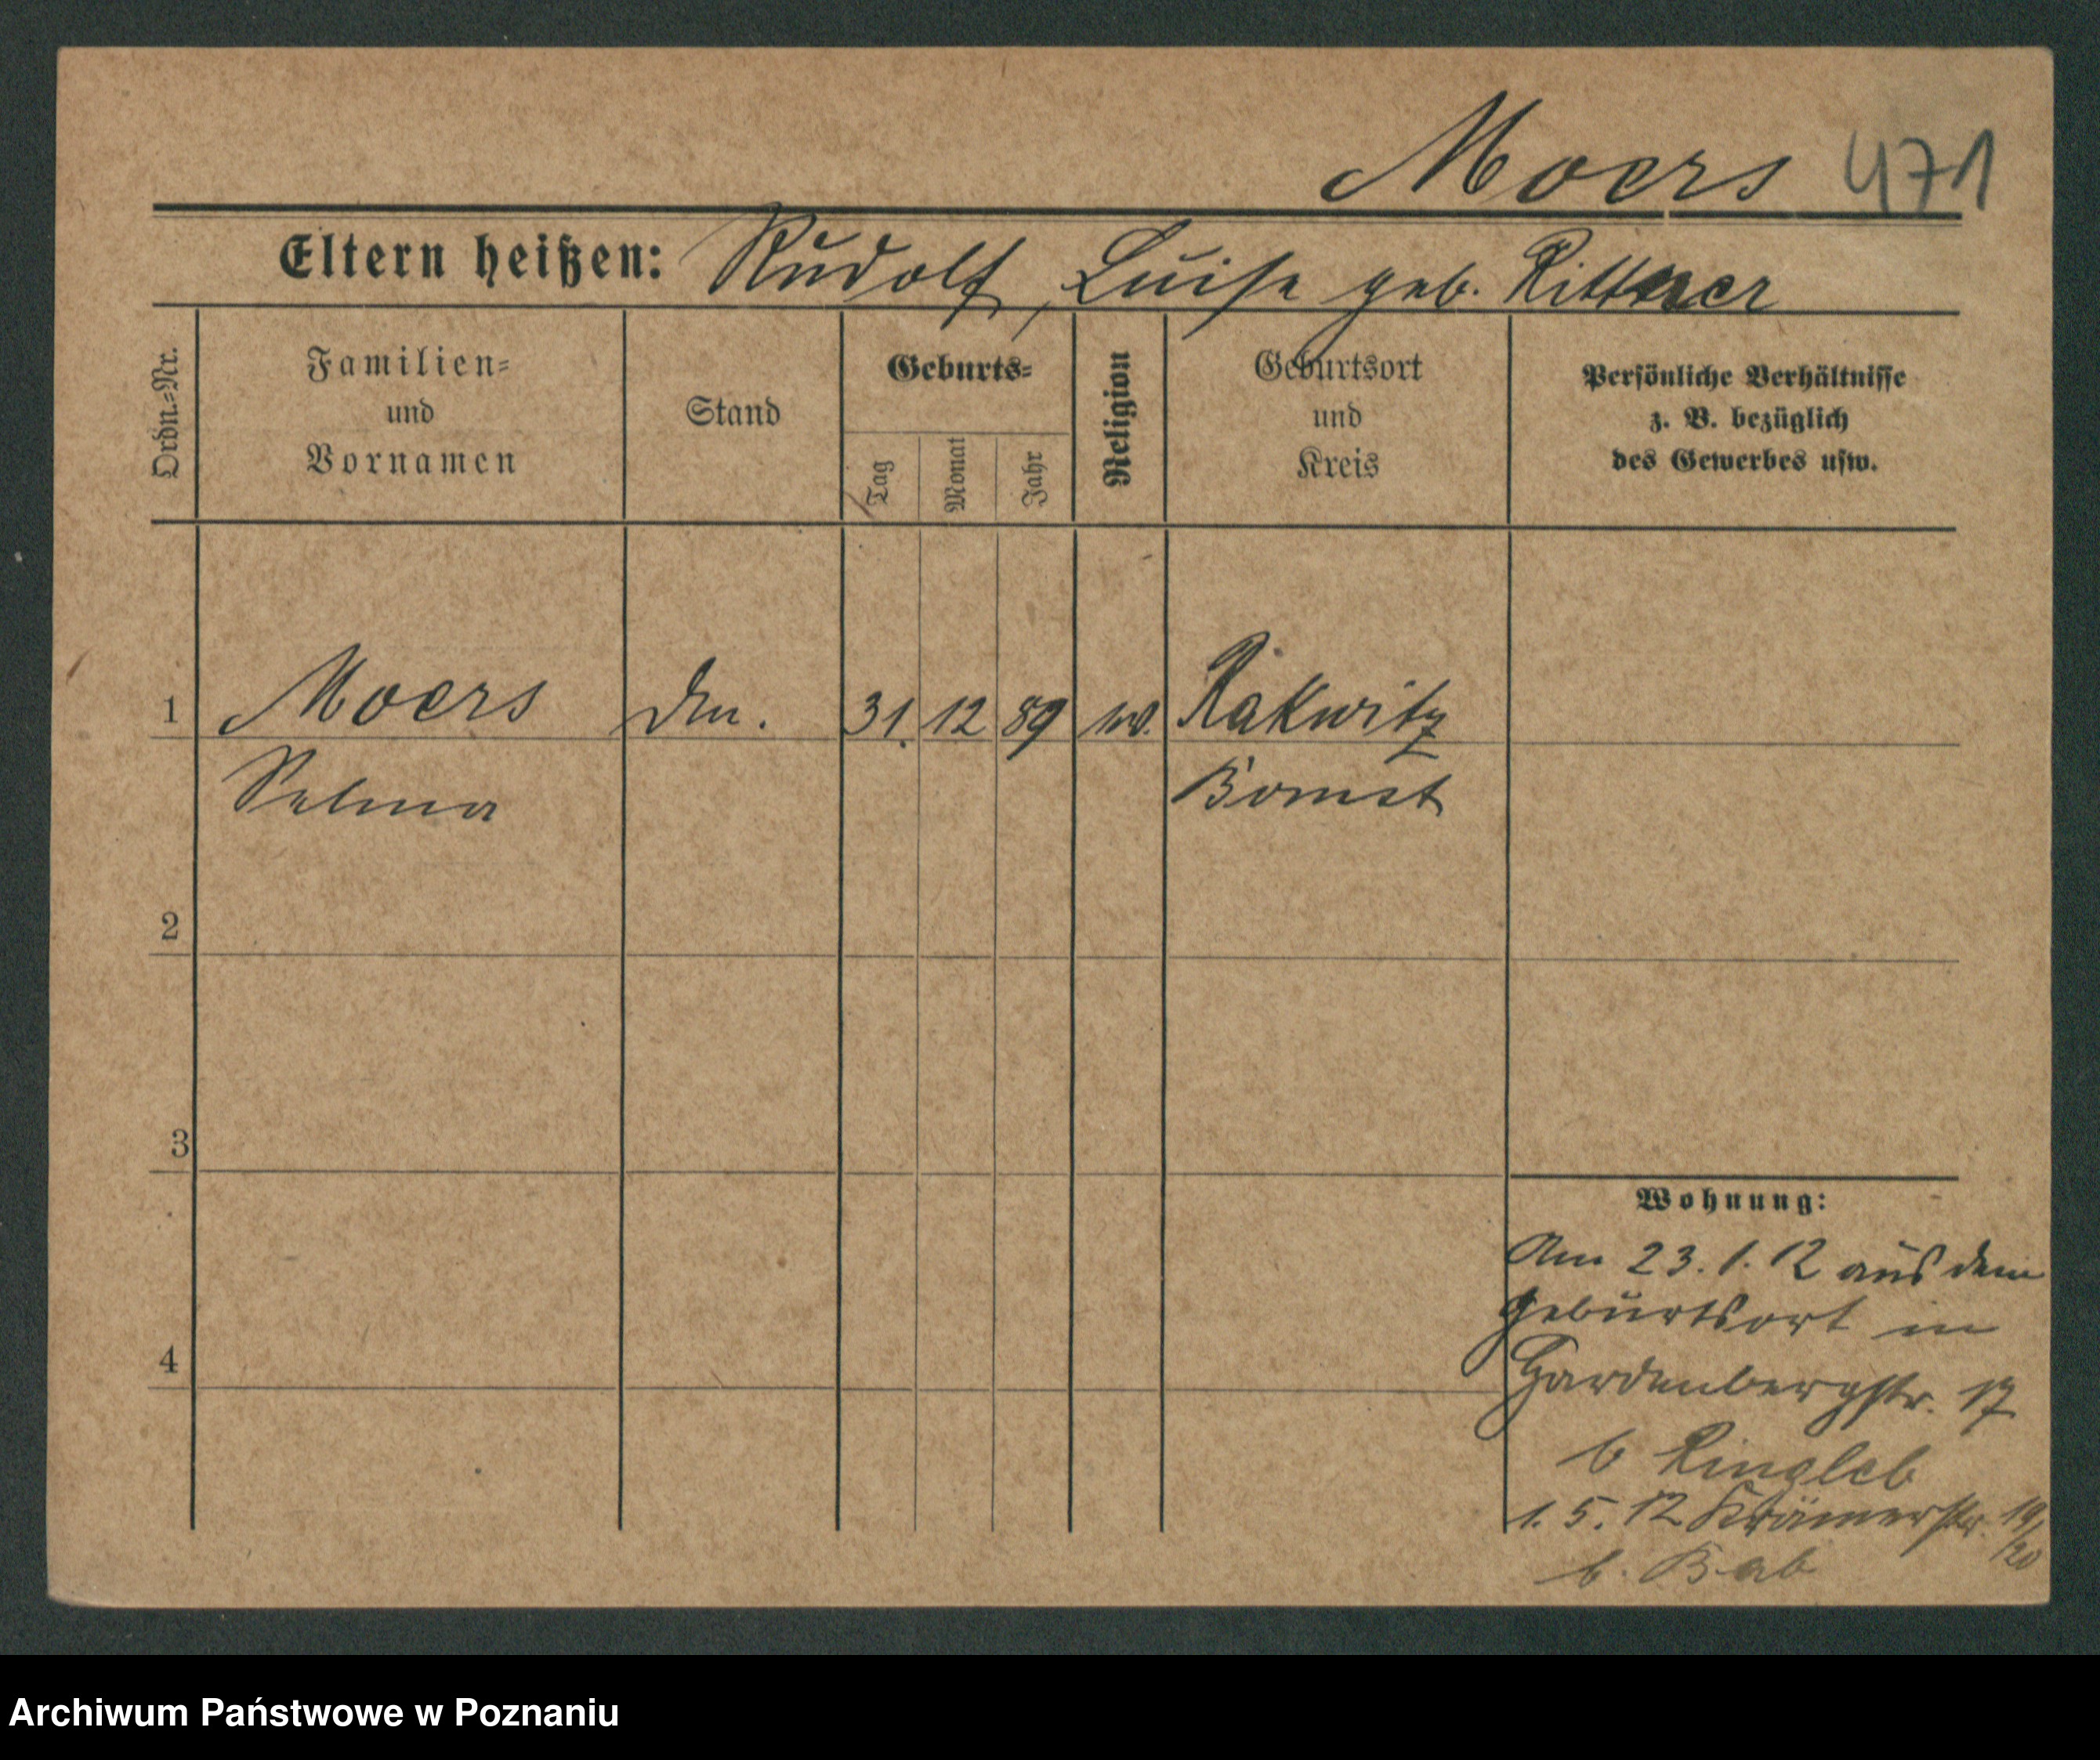 Moers 471
Eltern heißen: Rudolf, Luise geb. Rittner
Ordn.-Nr.
Familien-
und
Vornamen
Stand
Geburts-
Tag
Monat
Jahr
Religion
Geburtsort
und
Kreis
Persönliche Verhältnisse
z. B. bezüglich
des Gewerbes usw.
1 Moers 31. 12 89 Rakwitz
Selma Bomst
2
3
4
Wohnung:
Am 23.1.12 aus dem
Geburtsort in
Hardenbergstr. 17
b Ringleb
1.5.12 Krämerstr. 19/20
b. Bab
Archiwum Państwowe w Poznaniu